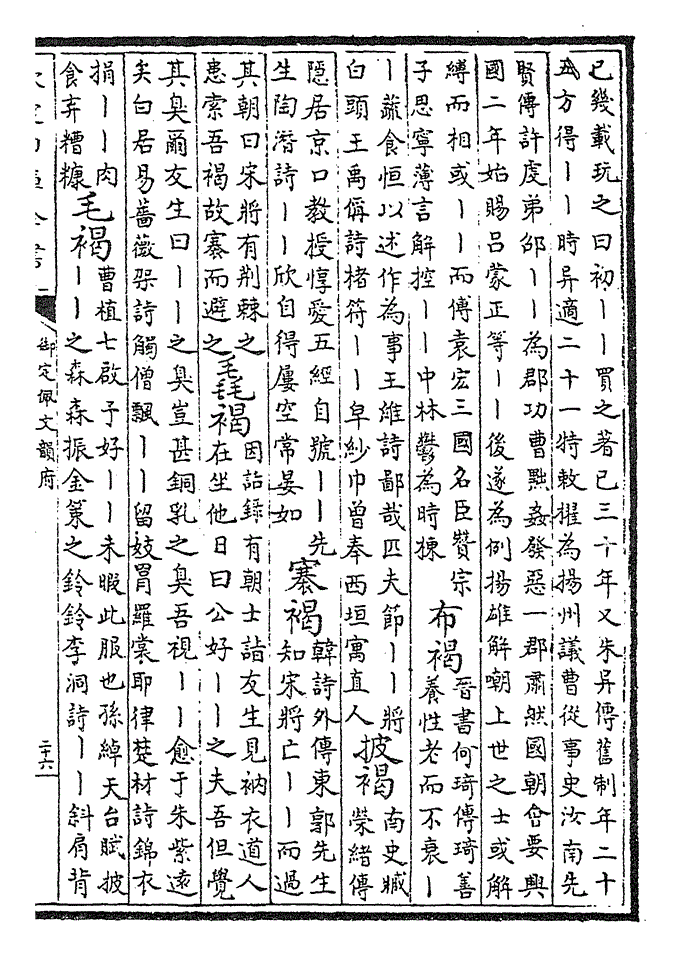 已幾載玩之曰初丨丨買之著已三十年又朱异傳舊制年二十
五方得丨丨時异適二十一特敕擢為揚州議曹從事史汝南先
賢傳許虔弟邵丨丨為郡功曹黜姦發惡一郡肅然國朝會要興
國二年始賜呂蒙正等丨丨後遂為例揚雄解嘲上世之士或解
縛而相或丨丨而傅袁宏三國名臣贊宗
子思寧薄言解控丨丨中林鬱為時棟
布褐
晉書何琦傳琦善
養性老而不衰丨
丨蔬食恒以述作為事王維詩鄙哉匹夫節丨丨將
白頭王禹偁詩楮符丨丨皁紗巾曾奉西垣寓直人
披褐
南史臧
榮緒傳
隱居京口教授惇愛五經自號丨丨先
生陶潛詩丨丨欣自得屢空常晏如
褰褐
韓詩外傳東郭先生
知宋將亡丨丨而過
其朝曰宋將有荆棘之
患索吾褐故褰而避之
毳褐
因話錄有朝士詣友生見衲衣道人
在坐他日曰公好丨丨之夫吾但覺
其臭爾友生曰丨丨之臭豈甚銅乳之臭吾視丨丨愈于朱紫遠
矣白居易薔薇架詩觸僧飄丨丨留妓冒羅裳耶律楚材詩錦衣
捐丨丨肉
食弃糟糠
毛褐
曹植七啟予好丨丨未暇此服也孫綽天台賦披
丨丨之森森振金策之鈴鈴李洞詩丨丨斜肩背
御定佩文韻府
二十六